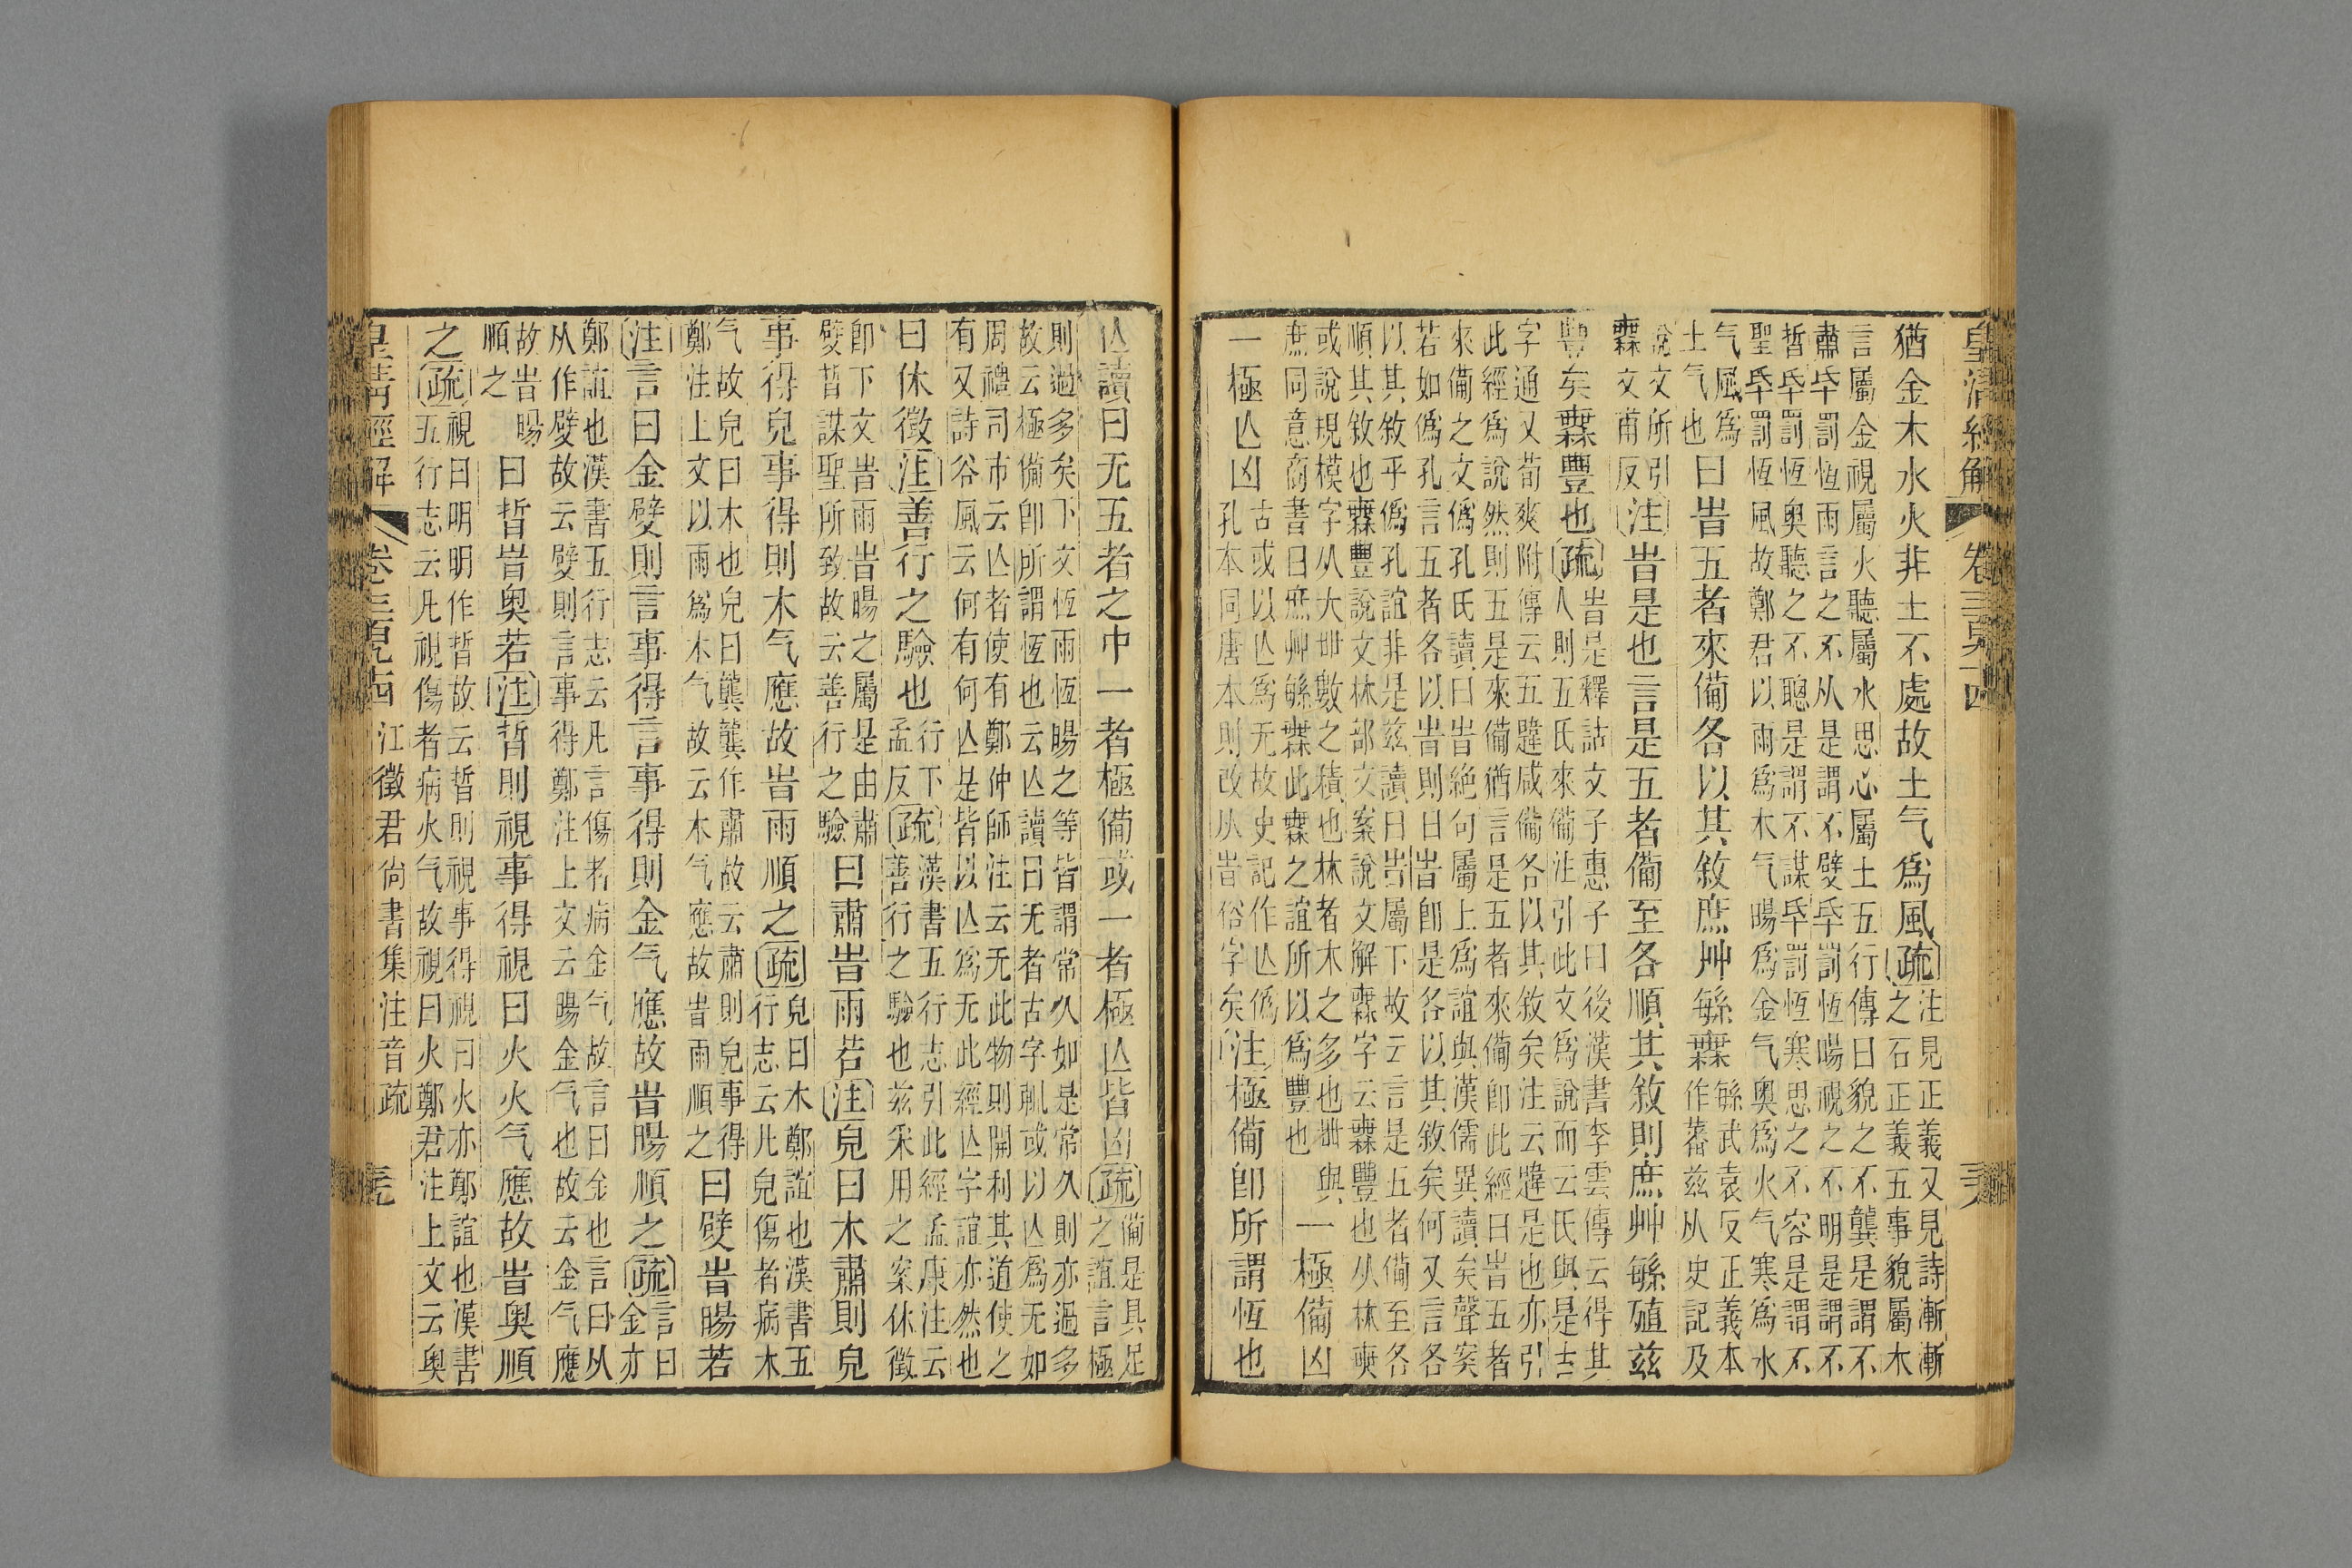 皇清經解 卷三百九十四
猶金木水火非土不處故土气爲風疏注見正義又見詩漸漸
之石正義五事貌屬木
言屬金視屬火聽屬水思心屬土五行傳曰貌之不龔是謂不
肅厥罰恆雨言之不从是謂不躄厥罰恆暘視之不明是謂不
晢厥罰恆奧聽之不聰是謂不謀厥罰恆寒思之不容是謂不
聖厥罰恆風故鄭君以雨爲木气暘爲金气奧爲火气寒爲水
气風爲
土气也曰旹五者來備各以其敘庶艸緐橆緐武袁反正義本
作蕃兹从史記及
說文所引
橆文甫反注旹是也言是五者備至各順其敘則庶艸緐殖兹
豐矣橆豐也疏旹是釋詁文子惠子曰後漢書李雲傳云得其
人則五氏來備注引此文爲說而云氏與是古
字通又荀爽附傳云五韙咸備各以其敘矣注云韙是也亦引
此經爲說然則五是來備猶言是五者來備卽此經曰旹五者
來備之文僞孔氏讀曰旹絶句屬上爲誼與漢儒異讀矣聲案
若如僞孔言五者各以旹則曰旹卽是各以其敘矣何又言各
以其敘乎僞孔誼非是兹讀曰旹屬下故云言是五者備至各
順其敘也橆豐說文林部文案說文解橆字云橆豐也从林奭
或說規模字从大卌數之積也林者木之多也卌與
庶同意商書曰庶艸緐橆此橆之誼所以爲豐也一極備凶
一極亾凶古或以亾爲无故史記作亾僞
孔本同唐本則改从旹俗字矣注極備卽所謂恆也
亾讀曰无五者之中一者極備或一者極亾皆凶疏備是具足
之誼言極
則過多矣下文恆雨恆暘之等皆謂常久如是常久則亦過多
故云極備卽所謂恆也云亾讀曰无者古字軏或以亾爲无如
周禮司市云亾者使有鄭仲師注云无此物則開利其道使之
有又詩谷風云何有何亾是皆以亾爲无此經亾字誼亦然也
曰休徵注善行之驗也行下
孟反疏漢書五行志引此經孟康注云
善行之驗也兹采用之案休徵
卽下文旹雨旹暘之屬是由肅
躄晢謀聖所致故云善行之驗曰肅旹雨若注皃曰木肅則皃
事得皃事得則木气應故旹雨順之疏皃曰木鄭誼也漢書五
行志云凡皃傷者病木
气故皃曰木也皃曰龔龔作肅故云肅則皃事得
鄭注上文以雨爲木气故云木气應故旹雨順之曰躄旹暘若
注言曰金躄則言事得言事得則金气應故旹暘順之疏言曰
金亦
鄭誼也漢書五行志云凡言傷者病金气故言曰金也言曰从
从作躄故云躄則言事得鄭注上文云暘金气也故云金气應
故旹暘
順之曰晢旹奧若注晢則視事得視曰火火气應故旹奧順
之疏視曰明明作晢故云晢則視事得視曰火亦鄭誼也漢書
五行志云凡視傷者病火气故視曰火鄭君注上文云奧
皇清經解 卷三百九十四 江徵君尙書集注音疏